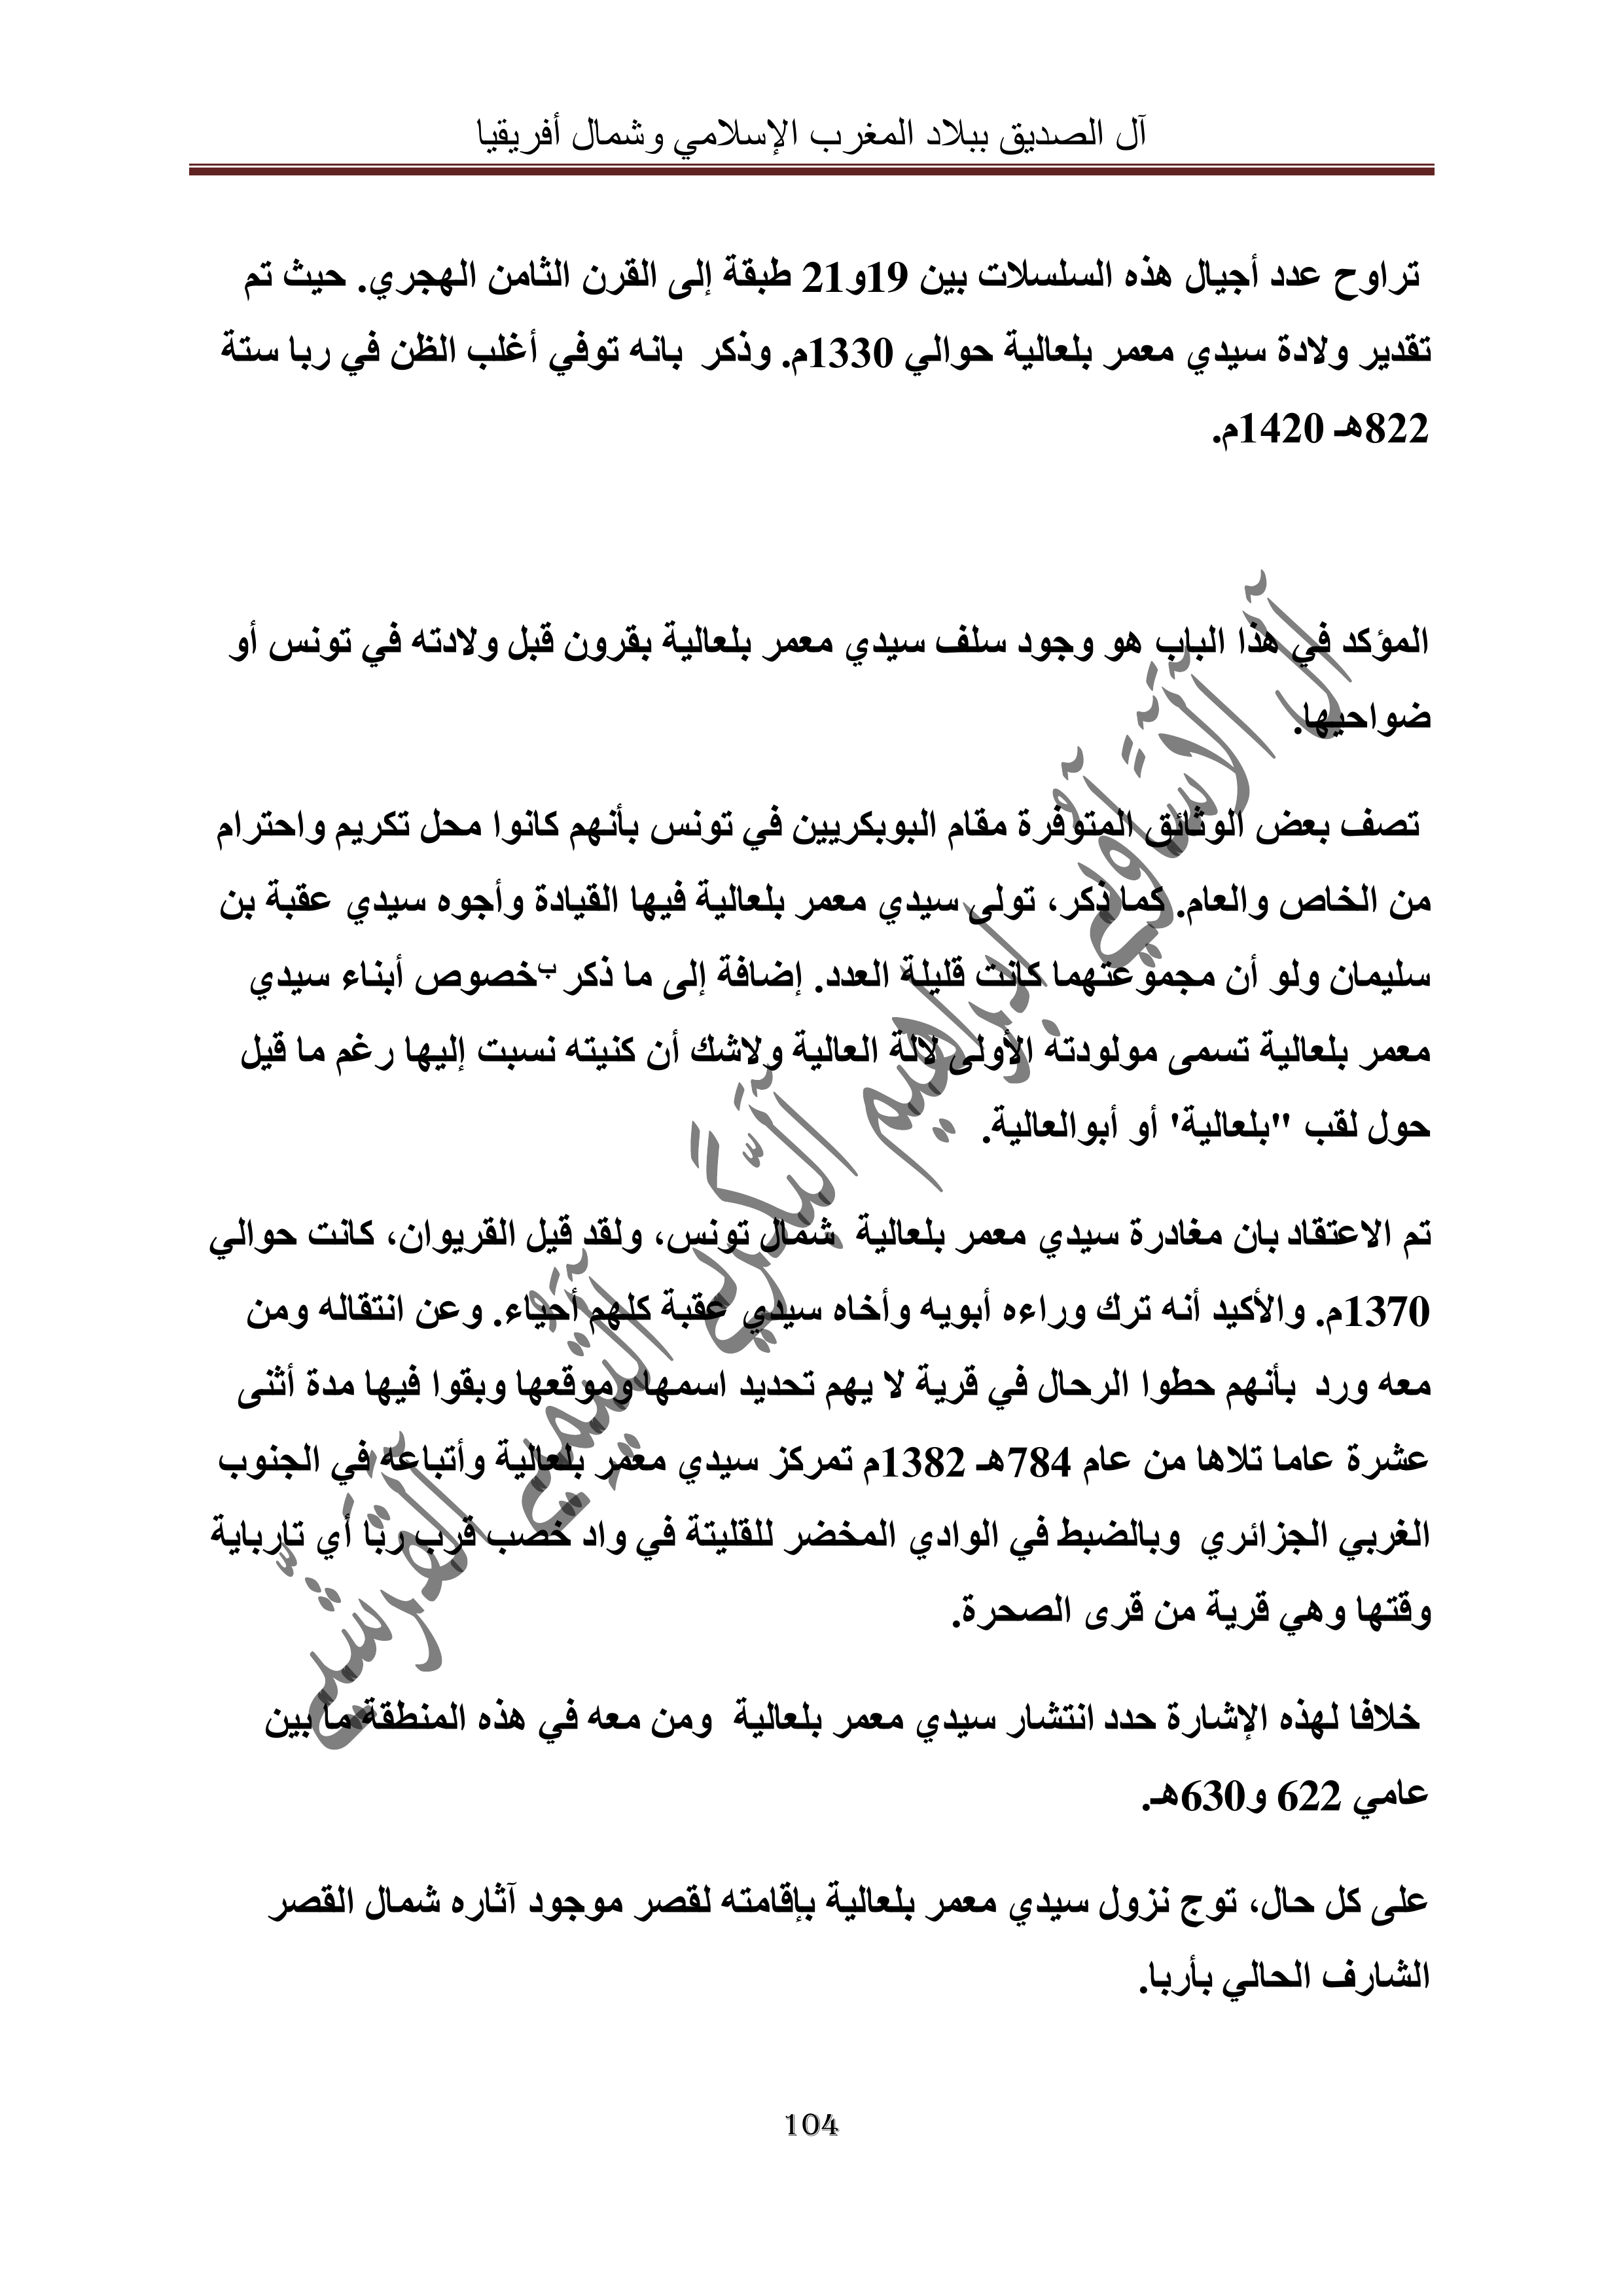 آل الصديق ببلاد المغرب الإسلامي وشمال أفريقيا
تراوح عدد أجيال هذه السلسلات بين 19و21 طبقة إلى القرن الثامن الهجري. حيث تم
تقدير ولادة سيدي معمر بلعالية حوالي 1330م. وذكر بانه توفي أغلب الظن في ربا ستة
822هـ 1420م.
المؤكد في هذا الباب هو وجود سلف سيدي معمر بلعالية بقرون قبل ولادته في تونس أو
ضواحيها.
تصف بعض الوثائق المتوفرة مقام البوبكريين في تونس بأنهم كانوا محل تكريم واحترام
من الخاص والعام. كما ذكر، تولى سيدي معمر بلعالية فيها القيادة وأجوه سيدي عقبة بن
سليمان ولو أن مجموعتهما كانت قليلة العدد. إضافة إلى ما ذكر بخصوص أبناء سيدي
معمر بلعالية تسمى مولودته الأولى لالة العالية ولاشك أن كنيته نسبت إليها رغم ما قيل
حول لقب "بلعالية' أو أبوالعالية.
تم الاعتقاد بان مغادرة سيدي معمر بلعالية شمال تونس، ولقد قيل القريوان، كانت حوالي
1370م. والأكيد أنه ترك وراءه أبويه وأخاه سيدي عقبة كلهم أحياء. وعن انتقاله ومن
معه ورد بأنهم حطوا الرحال في قرية لا يهم تحديد اسمها وموقعها وبقوا فيها مدة أثنى
عشرة عاما تلاها من عام 784هـ 1382م تمركز سيدي معمر بلعالية وأتباعه في الجنوب
الغربي الجزائري وبالضبط في الوادي المخضر للقليتة في واد خصب قرب ربا أي تارباية
وقتها وهي قرية من قرى الصحرة.
خلافا لهذه الإشارة حدد انتشار سيدي معمر بلعالية ومن معه في هذه المنطقة ما بين
عامي 622 و630هـ.
على كل حال، توج نزول سيدي معمر بلعالية بإقامته لقصر موجود آثاره شمال القصر
الشارف الحالي بأربا.
104